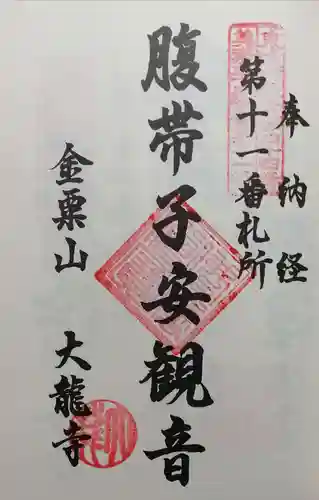 奉納経
第十一番札所
腹帯子安観音
金粟山　大龍寺